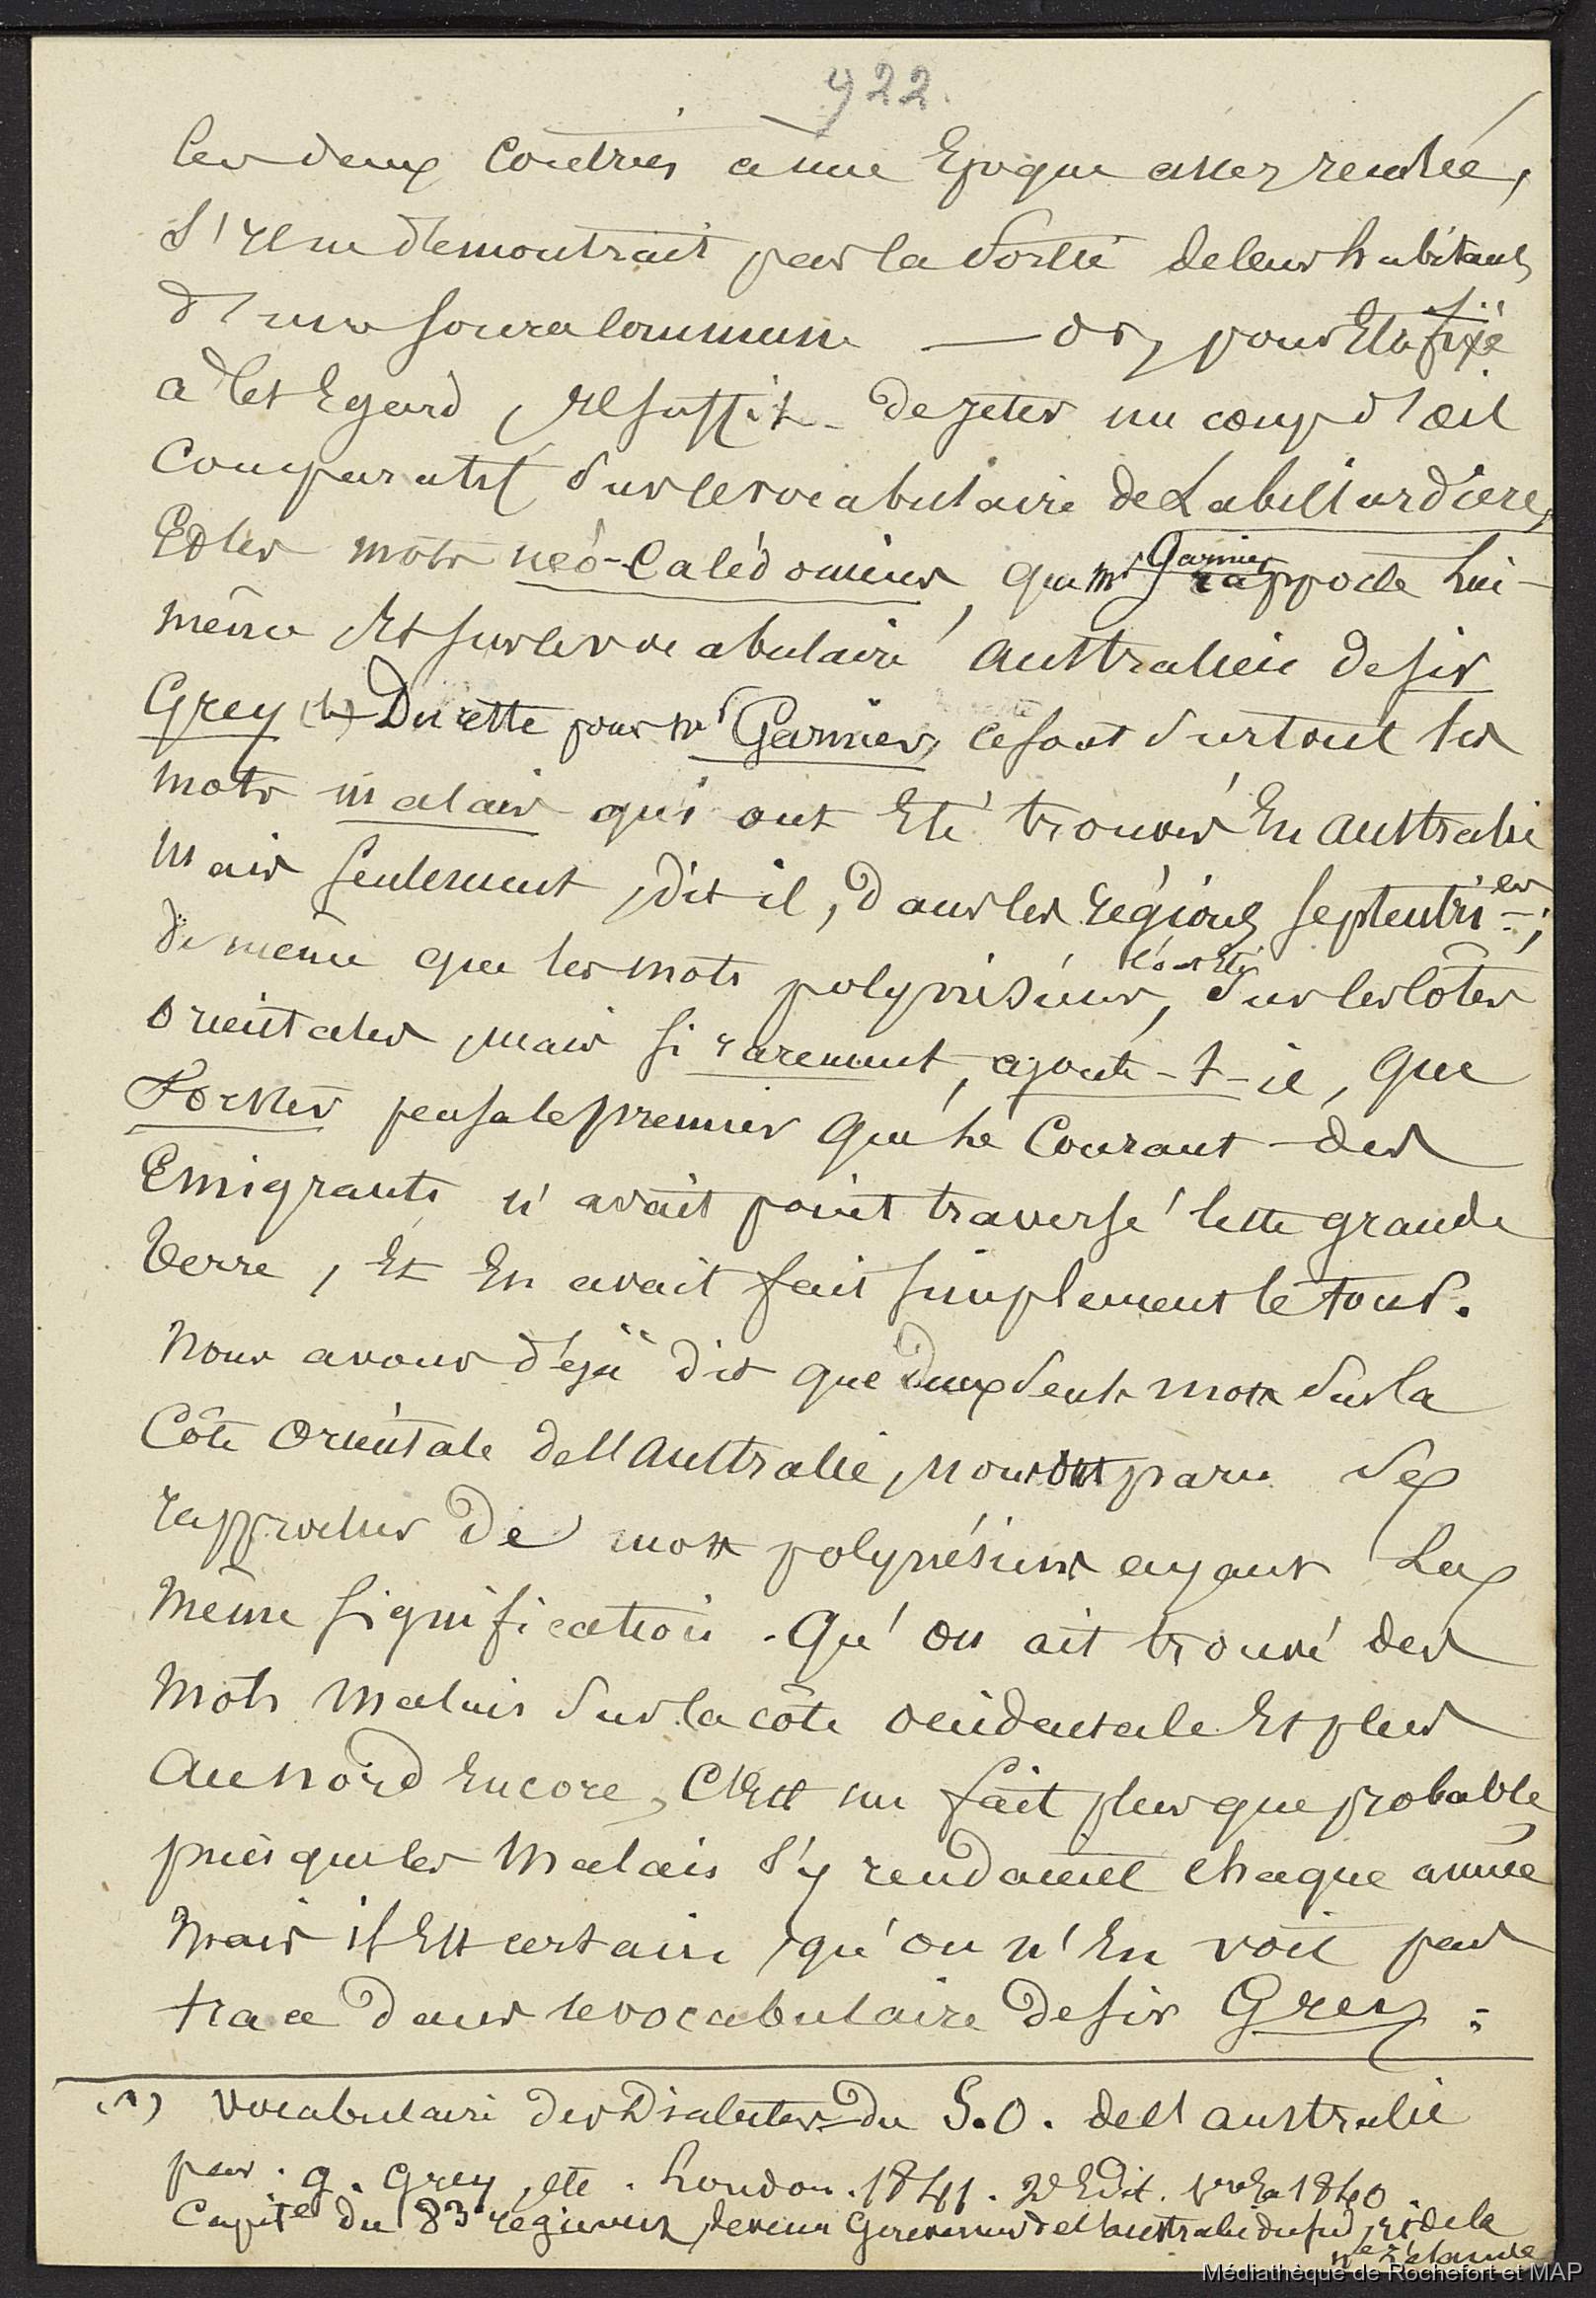 922.
les deux contrées à une Epoque assez reculée,
s'il ne demontrait pas la sortie de leurs habitants
d'une source commune — or, pour Etre fixé
à cet Egard, il suffit de jeter un coup d'œil
comparatif sur le vocabulaire de Labillardière,
Et les mots néo-Calédoniens, que Mr Garnier rapporte lui-
même Et sur le vocabulaire australien de sir
Grey (1) Du reste pour Mr Garnier, ce sont surtout les
mots malais qui ont Eté trouvés En Australie
mais seulement, dit il, dans les régions septentri-les;
de même que les mots polynésiens, l'ont Eté sur les côtes
orientales, mais si rarement, ajoute-t-il, que
Forster pensa le premier que le Courant des
Emigrants n'avait point traversé cette grande
terre, Et En avait fait simplement le tour.
Nous avons déjà dit que deux seuls mots sur la
Côte Orientale de l'Australie, nous ont paru se
rapprocher de mots polynésiens ayant la
même signification. Qu'on ait trouvé des
mots malais sur la côte occidentale Et plus
au nord Encore, C'Est un fait plus que probable
puisque les Malais s'y rendaient chaque année
Mais il Est certain, qu'on n'En voit pas
trace dans le vocabulaire de sir Grey:
(1) Vocabulaire des Dialectes du S.O. de l'australie
par. g. Grey, etc. London. 1841. 2e Edit. 1840
Capite du 83e régiment, devenu Gouverneur de l'australie du sud, de la
nle Zélande
Médiathèque de Rochefort et MAP